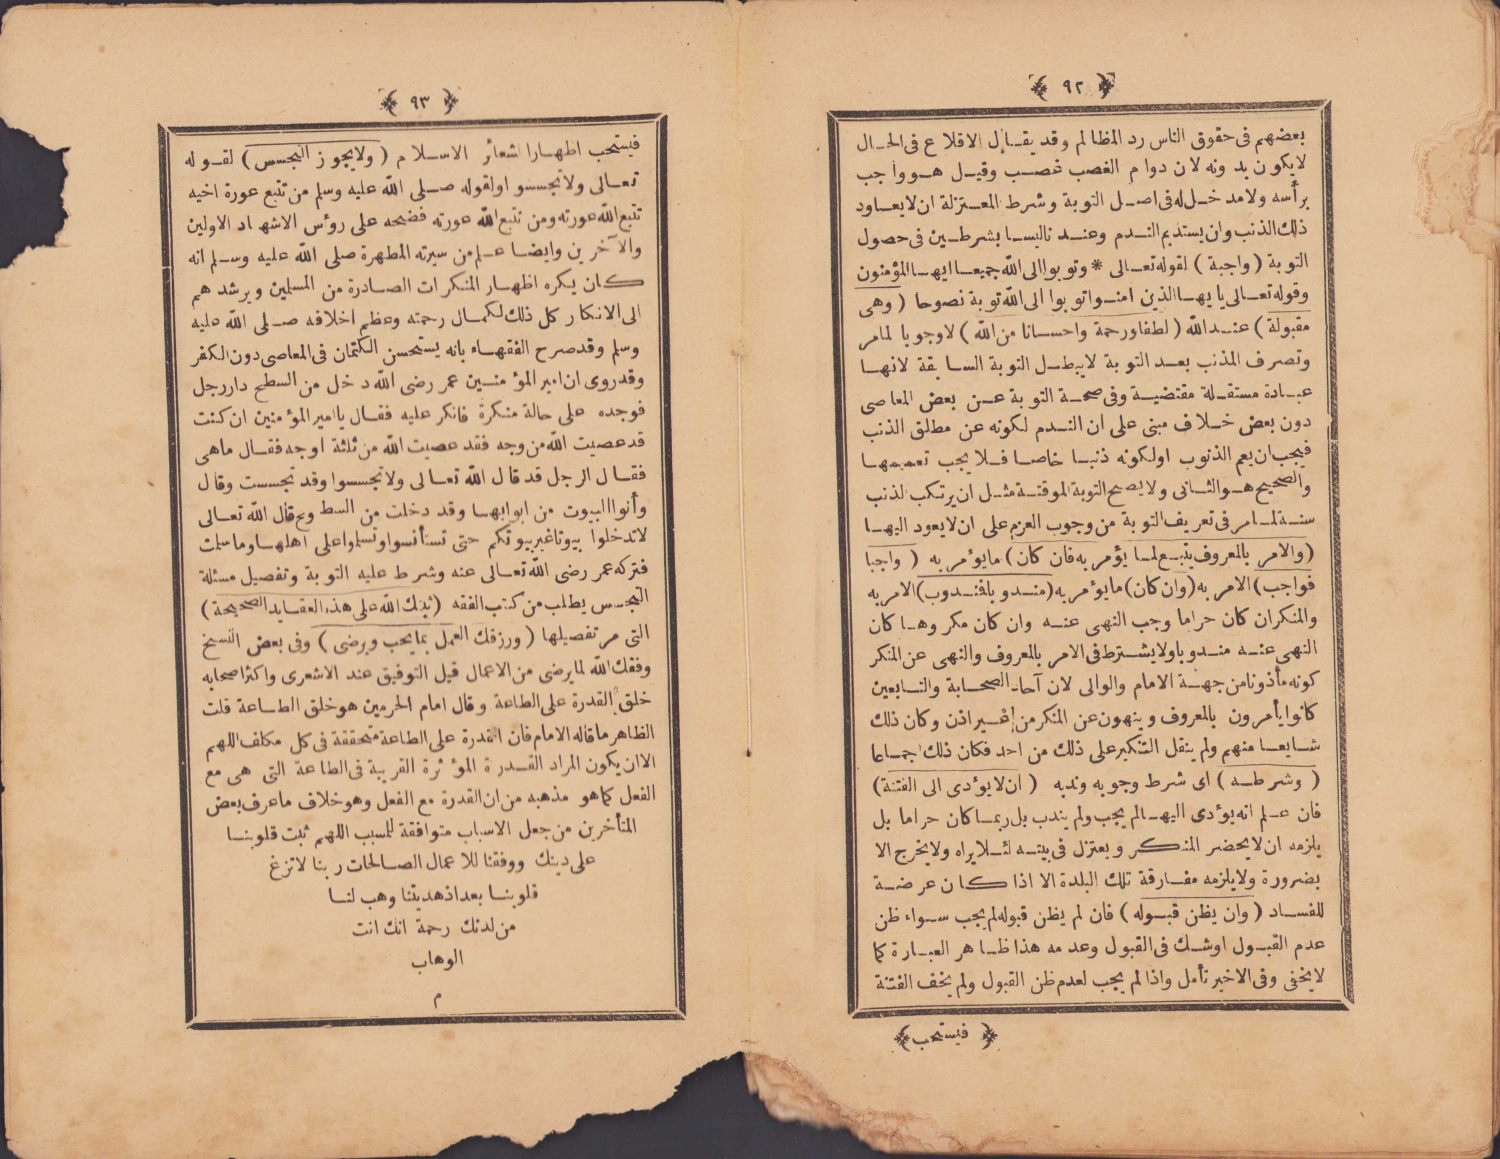 ﴿ ٩٢ ﴾
بعضهم فى حقوق الناس رد المظالم وقد يقال الاقلاع فى الحال
لايكون بدونه لان دوام الغصب غصب وقيل هو واجب
برأسه ولامدخل له فى اصل التوبة وشرط المعتزلة ان لايعاود
ذلك الذنب وان يستديم الندم وعند نا ليسا بشرطين فى حصول
التوبة ( واجبة ) لقوله تعالى * وتوبوا الى الله جميعا ايها المؤمنون
وقوله تعالى يا يها الذين امنوا توبوا الى الله توبة نصوحا ( وهى
مقبولة ) عند الله ( لطفا ورحمة واحسانا من الله ) لاوجوبا لما مر
وتصرف المذنب بعد التوبة لايبطل التوبة السابقة لانها
عبادة مستقلة مقتضية وفى صحة التوبة عن بعض المعاصى
دون بعض خلاف مبنى على ان الندم لكونه عن مطلق الذنب
فيجب ان يعم الذنوب اولكونه ذنبا خاصا فلا يجب تعميمها
والصحيح هو الثانى ولا يصح التوبة الموقتة مثل ان يرتكب الذنب
سنة لما مر فى تعريف التوبة من وجوب العزم على ان لايعود اليها
( والامر بالمعروف يتبع لما يؤمر به فان كان ) مايؤمر به ( واجبا
فواجب ) الامر به ( وان كان ) مايؤمر به ( مندوبا فمندوب ) الامر به
والمنكر ان كان حراما وجب النهى عنه وان كان مكروها كان
النهى عنه مندوبا ولايشترط فى الامر بالمعروف والنهى عن المنكر
كونه مأذونا من جهة الامام والوالى لان آحاد الصحابة والتابعين
كانوا يأمرون بالمعروف وينهون عن المنكر من غير اذن وكان ذلك
شايعا منهم ولم ينقل التنكير على ذلك من احد فكان ذلك اجماعا
( وشرطه ) اى شرط وجوبه وندبه ( ان لايؤدى الى الفتنة )
فان علم انه يؤدى اليها لم يجب ولم يندب بل ربما كان حراما بل
يلزمه ان لايحضر المنكر ويعتزل فى بيته لئلا يراه ولايخرج الا
بضرورة ولايلزمه مفارقة تلك البلدة الا اذا كان عرضة
للفساد ( وان يظن قبوله ) فان لم يظن قبوله لم يجب سواء ظن
عدم القبول اوشك فى القبول وعدمه هذا ظاهر العبارة كما
لايخفى وفى الاخير تأمل واذا لم يجب لعدم ظن القبول ولم يخف الفتنة
﴿ فيستحب ﴾
﴿ ٩٣ ﴾
فيستحب اظهارا لشعائر الاسلام ( ولايجوز التجسس ) لقوله
تعالى ولاتجسسوا ولقوله صلى الله عليه وسلم من تتبع عورة اخيه
تتبع الله عورته ومن تتبع الله عورته فضحه على رؤس الاشهاد الاولين
والآخرين وايضا علم من سيرته المطهرة صلى الله عليه وسلم انه
كان يكره اظهار المنكرات الصادرة من المسلمين ويرشدهم
الى الانكار كل ذلك لكمال رحمته وعظم اخلافه صلى الله عليه
وسلم وقد صرح الفقهاء بانه يستحسن الكتمان فى المعاصى دون الكفر
وقد روى ان امير المؤمنين عمر رضى الله دخل من السطح دار رجل
فوجده على حالة منكرة فانكر عليه فقال يا امير المؤمنين ان كنت
قد عصيت الله من وجه فقد عصيت الله من ثلثة اوجه فقال ماهى
فقال الرجل قد قال الله تعالى ولاتجسسوا وقد تجسست وقال
وأتوا البيوت من ابوابها وقد دخلت من السطوح قال الله تعالى
لاتدخلوا بيوتا غير بيوتكم حتى تستأنسوا وتسلموا على اهلها وما سلمت
فتركه عمر رضى الله تعالى عنه وشرط عليه التوبة وتفصيل مسئلة
التجسس يطلب من كتب الفقه ( ثبتك الله على هذه العقايد الصحيحة )
التى مر تفصيلها ( ورزقك العمل بما يحب ويرضى ) وفى بعض النسخ
وفقك الله لما يرضى من الاعمال قيل التوفيق عند الاشعرى واكثر اصحابه
خلق القدرة على الطاعة وقال امام الحرمين هو خلق الطاعة قلت
الظاهر ماقاله الامام فان القدرة على الطاعة متحققة فى كل مكلف اللهم
الا ان يكون المراد القدرة المؤثرة القريبة فى الطاعة التى هى مع
الفعل كما هو مذهبه من ان القدرة مع الفعل وهو خلاف ما عرف بعض
المتأخرين من جعل الاسباب متوافقة للمسبب اللهم ثبت قلوبنا
على دينك ووفقنا للاعمال الصالحات ربنا لاتزغ
قلوبنا بعد اذ هديتنا وهب لنا
من لدنك رحمة انك انت
الوهاب
م